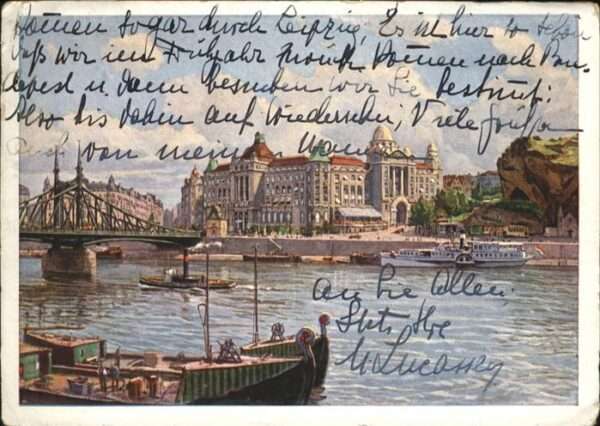 kommen sogar durch Leipzig, Es ist hier so schön
daß wir im Frühjahr zurück kommen nach Bu
dapest u. dann besuchen wir Sie bestimt:
Also bis dahin auf Wiedersehn, Viele Grüße
auch von meinem Mann
an Sie Allen.
Stets Ihre
M Lucassey